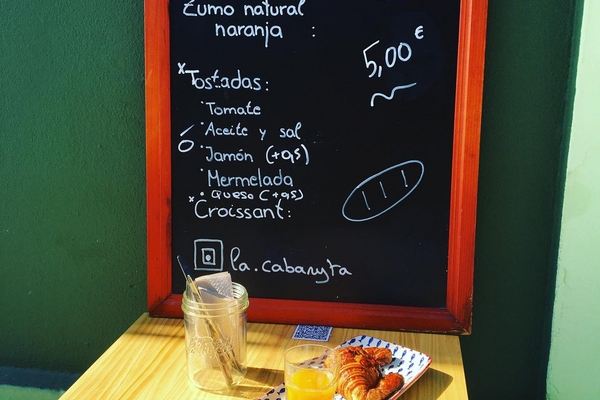 Zumo natural
naranja :
5,00 €
*Tostadas:
· Tomate
· Aceite y sal
ó
· Jamón (+0,5)
· Mermelada
· Queso (+0,5)
*Croissant:
la.cabanyta